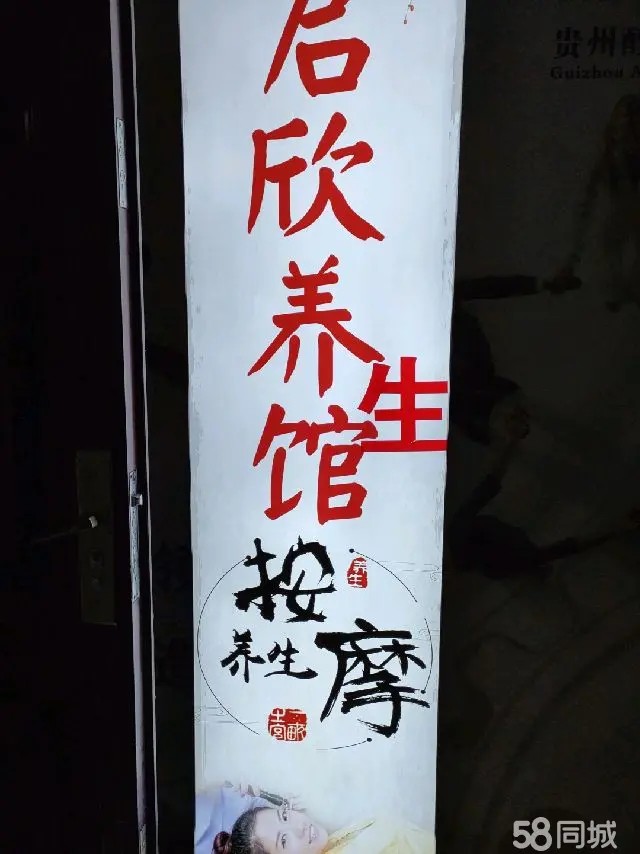 启欣养生馆
按摩
养生
养生
贵州
Guizhou
58同城